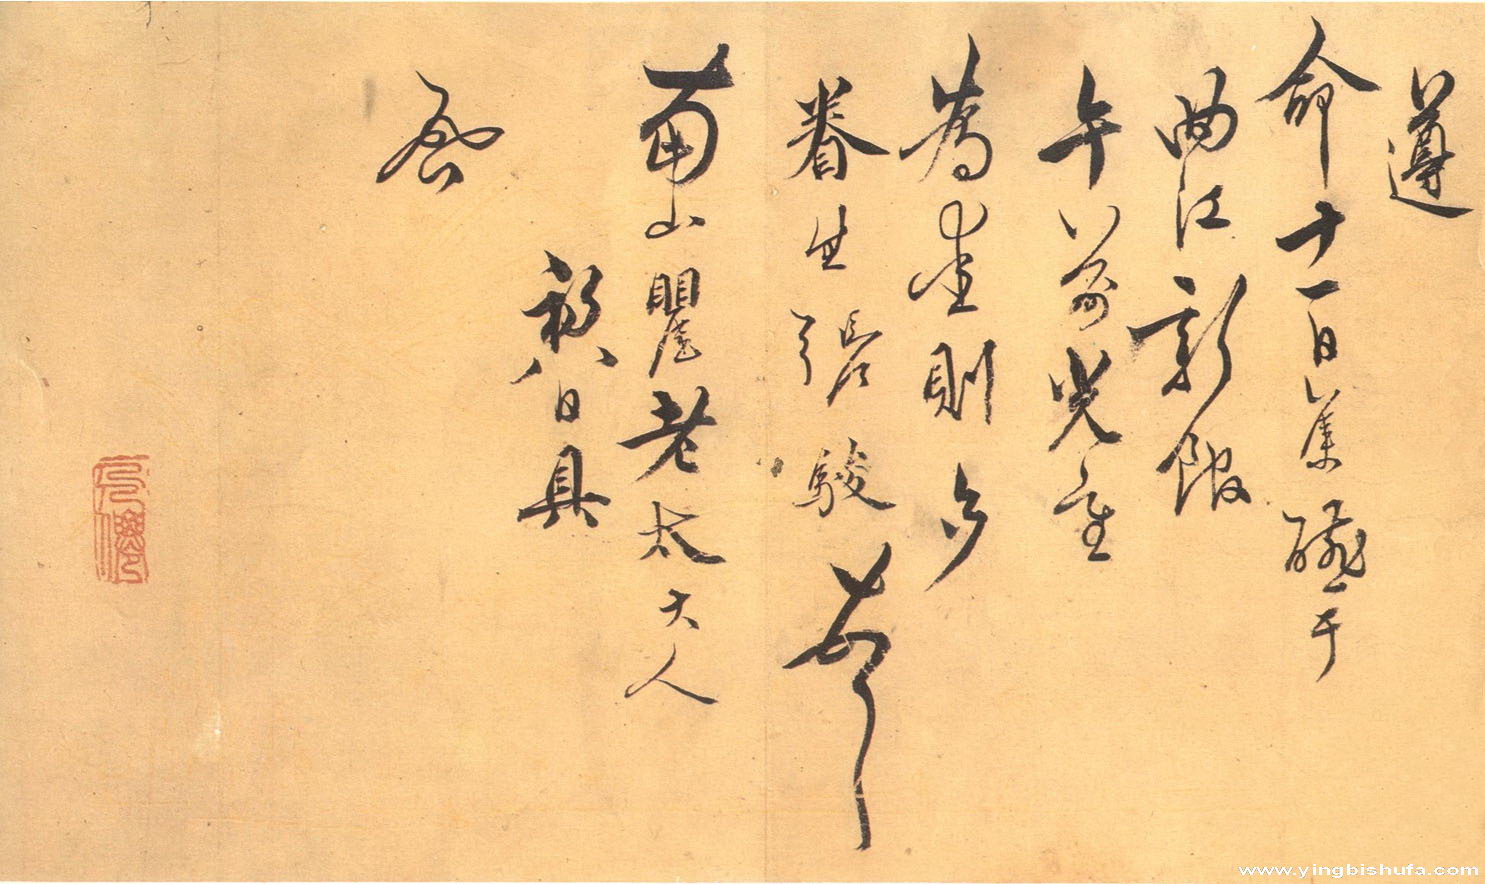 遵
命十一日集醵于
曲江新館
午前光重
爲則
眷生張駿
南山瞿老太大人
初八日具
啓
www.yingbishufa.com